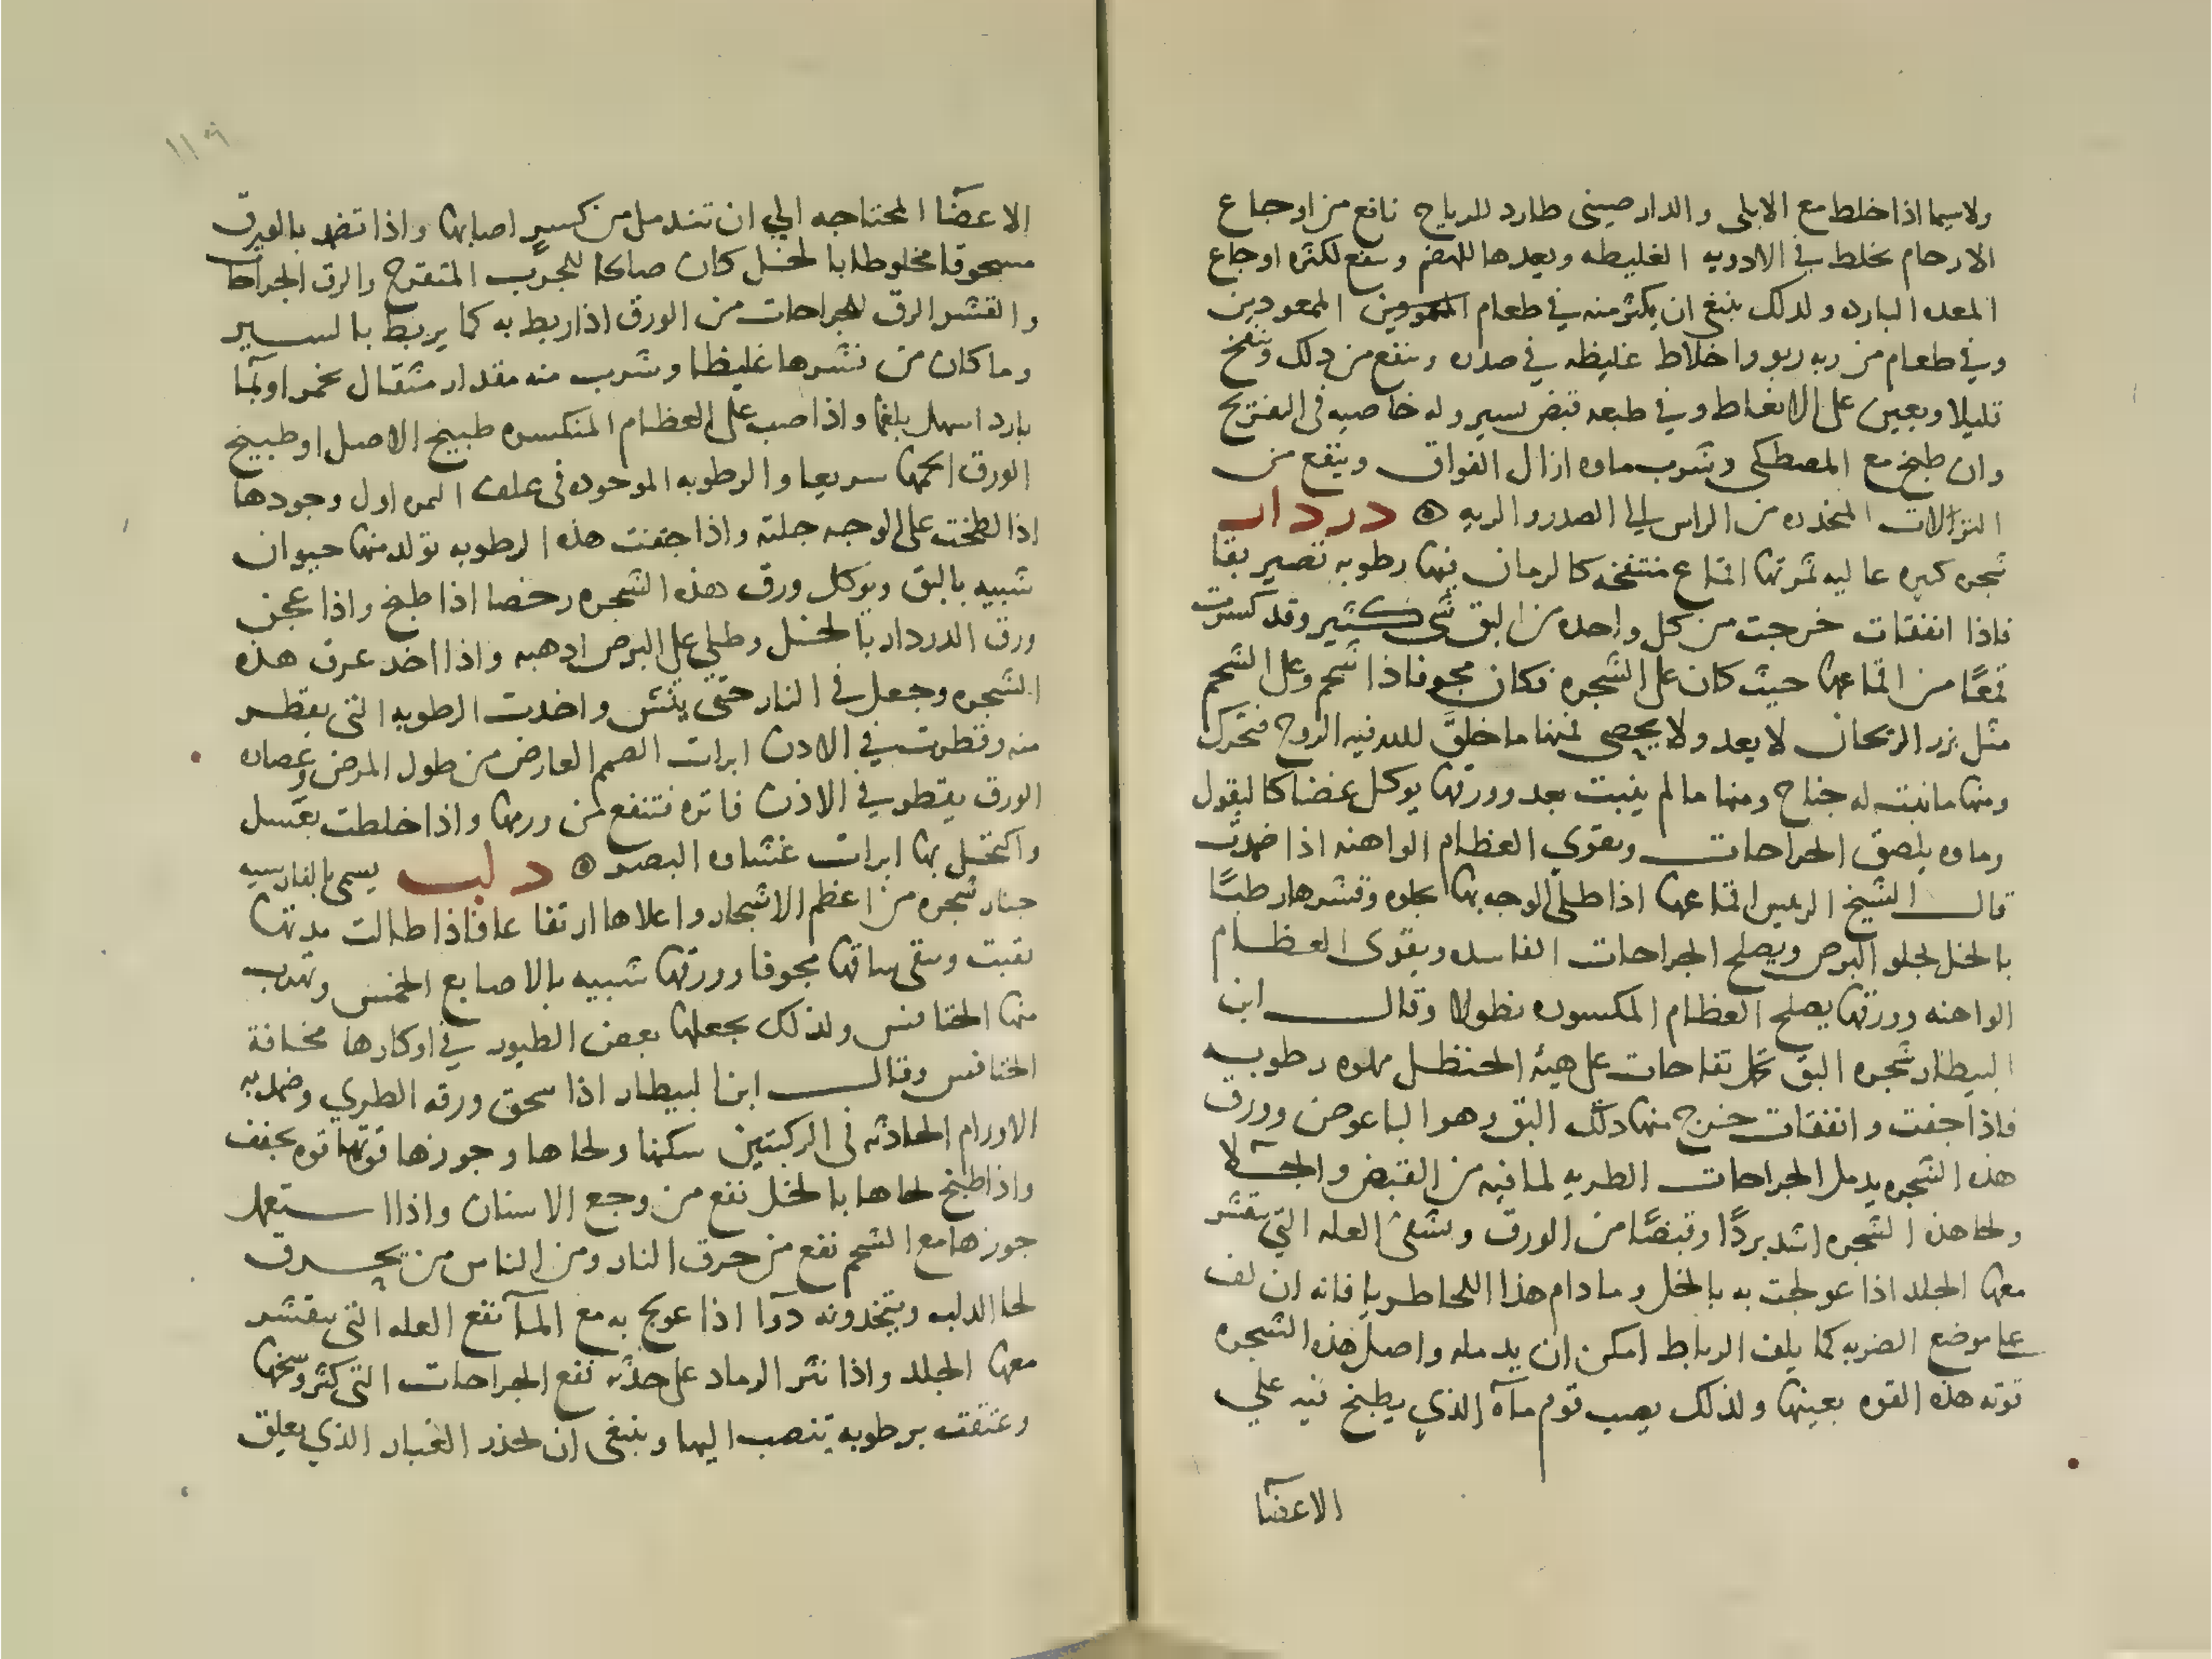 ولاسيما اذا خلط مع الابلى والدارصينى طارد للرياح نافع من اوجاع
الارحام يخلط في الادويه الغليظه ويعدها للهضم وينفع لكثره اوجاع
المعده البارده ولدلك ينبغى ان يكثر منه في طعام المعودين
وفي طعام من به ربو واخلاط غليظه في صدره وينفع من دلك وينفخ
قليلا ويعين على الانعاظ وفي طبعه قبض يسير وله خاصيه في التفريح
وان طبخ مع المصطكى وشرب ماوه ازال الفواق وينفع من
النزالات المنحدره من الراس الى الصدر والريه ۞ دردار
شجره كبيره عاليه ثمرتها اقماع منتفخه كالرمان فيها رطوبه تصير بقا
فاذا انفقات خرجت من كل واحده من البق شى كثير وقد كسرت
قمعًا من اقماعها حيث كان على الشجره فكان مجوفا ذا شحم وعلى الشحم
مثل بزر الريحان لا يعد ولا يحصى فمنها ما خلق لله فيه الروح فتحرك
ومنها ما نبت له جناح ومنها ما لم ينبت بعد وورقها يوكل غضا كالبقول
وماوه يلصق الجراحات ويقوي العظام الواهنه اذا ضمدت
قال الشيخ الرييس اقماعها اذا طلى الوجه بها يجلوه وقشرها رطبًا
بالخل يجلو البرص ويصلح الجراحات الفاسده ويقوى العظام
الواهنه وورقها يصلح العظام المكسوره نطولا وقال ابن
البيطار شجره البق تحمل تفاحات على هيئة الحنظل مملوه رطوبه
فاذا جفت وانفقات خرج منها دلك البق وهو الباعوض وورق
هذه الشجره يدمل الجراحات الطريه لما فيه من القبض والجلا
ولحا هذه الشجره اشد بردًا وقبضًا من الورق ويشفى العله التي يتقشر
معها الجلد اذا عولجت به بالخل وما دام هذا اللحا طريا فانه ان لف
على موضع الضربه كما يلف الرباط امكن ان يدمله واصل هذه الشجره
قوته هذه القوه بعينها ولذلك يصب قوم مآه الذي يطبخ فيه علي
الاعضآ
١١٩
الاعضآ المحتاجه الي ان تندمل من كسر اصابها واذا تضمد بالورق
مسحوقا مخلوطا بالخل كان صالحا للجرب المتقرح والزق الجراحات
والقشر الزق للجراحات من الورق اذا ربط به كما يربط بالسير
وما كان من قشرها غليظا وشرب منه مقدار مثقال بخمر او بمآ
بارد اسهل بلغما واذا صب على العظام المنكسره طبيخ الاصل او طبيخ
الورق الحمها سريعا والرطوبه الموجوده في غلف الثمره اول وجودها
اذا لطخت على الوجه جلته واذا جفت هذه الرطوبه تولد منها حيوان
شبيه بالبق ويوكل ورق هذه الشجره رخصا اذا طبخ واذا عجن
ورق الدردار بالخل وطلي على البرص ادهبه واذا اخد عرق هذه
الشجره وجعل في النار حتى ينش واخدت الرطوبه التى تقطر
منه وقطرت في الادن ابرات الصمم العارض من طول المرض وعصاره
الورق يقطر في الاذن فاتره فتنفع من ورمها واذا خلطت بعسل
واكتحل بها ابرات غشاوه البصر ۞ دلب يسمى بالفارسيه
جنار شجره من اعظم الاشجار واعلاها ارتفاعا فاذا طالت مدتها
نقبت وبقى ساقها مجوفا وورقها شبيه بالاصابع الخمس وتهرب
منها الخنافس ولذلك يجعلها بعض الطيور في اوكارها مخافة
الخنافس وقال ابن البيطار اذا سحق ورقه الطري وضمد به
الاورام الحادثه في الركبتين سكنها ولحاها وجوزها قوتها قوه تجفف
واذا طبخ لحاها بالخل نفع من وجع الاسنان واذا استعمل
جوزها مع الشحم نفع من حرق النار ومن الناس من يحرق
لحا الدلب ويتخدونه دوآ اذا عولج به مع المآ نفع العله التى يتقشر
معها الجلد واذا نثر الرماد على حدته نفع الجراحات التى كثر وسخها
وعتقت برطوبه تنصب اليها وينبغى ان تحذر الغبار الذي يعلق